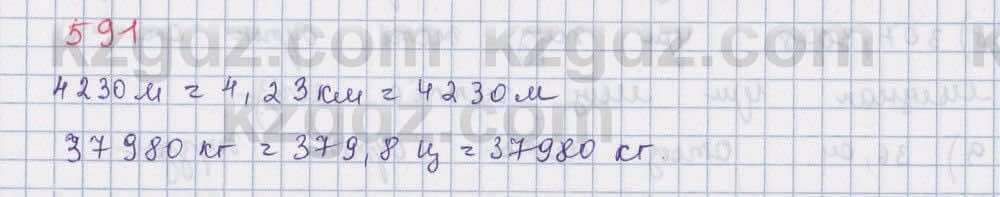 591
4230 м = 4,23 км = 4230 м
37980 кг = 379,8 ц = 37980 кг.
kzgdz.com kzgdz.com kzgdz.com
kzgdz.com